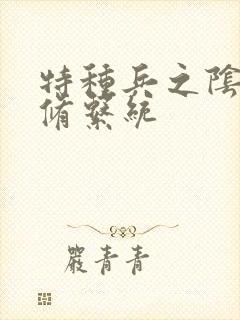 特種兵之陰
脩繫統
嚴青青